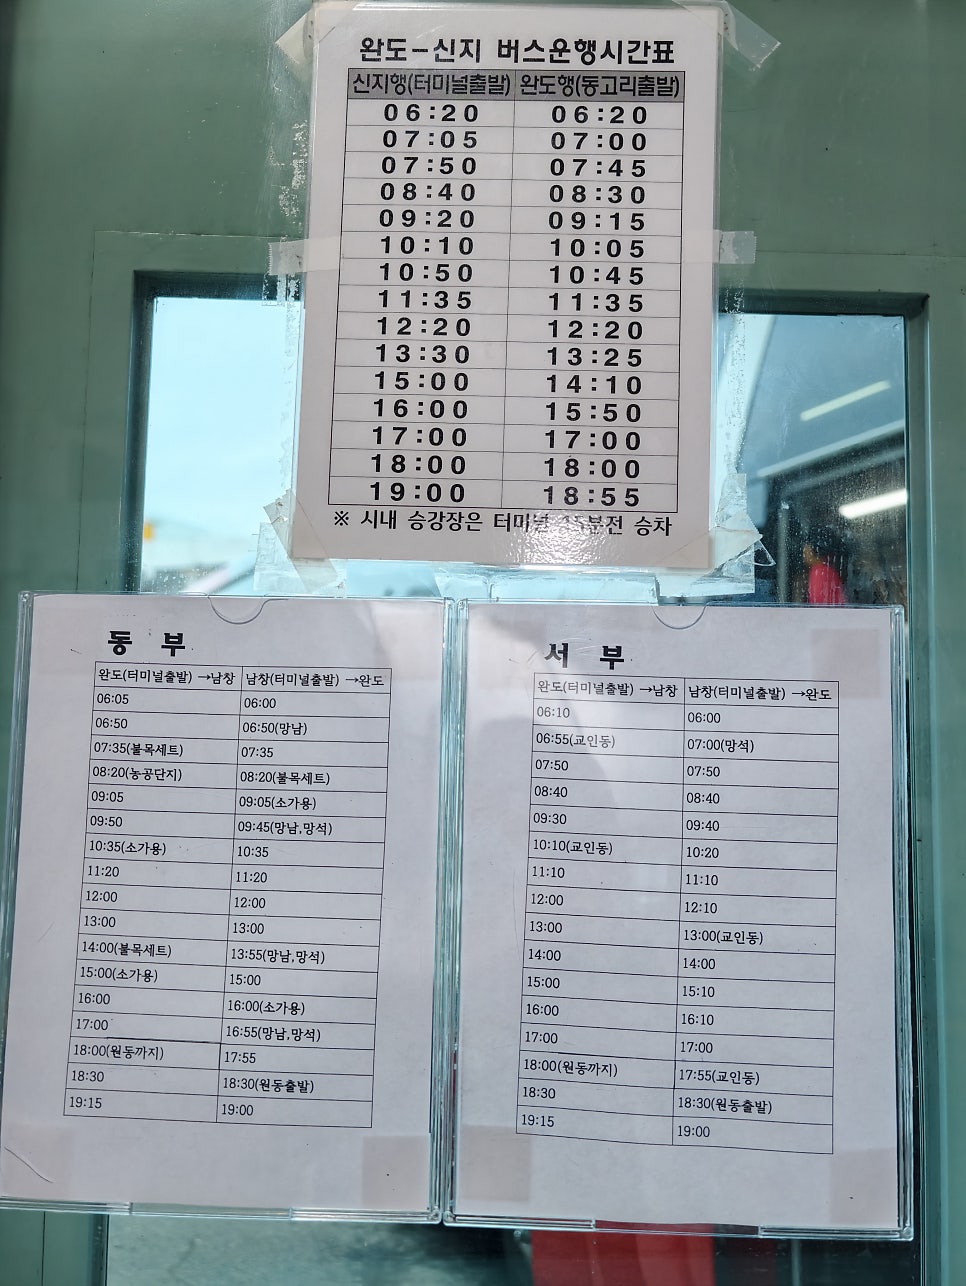 완도-신지 버스운행시간표
신지행(터미널출발) 완도행(동고리출발)
06:20 06:20
07:05 07:00
07:50 07:45
08:40 08:30
09:20 09:15
10:10 10:05
10:50 10:45
11:35 11:35
12:20 12:20
13:30 13:25
15:00 14:10
16:00 15:50
17:00 17:00
18:00 18:00
19:00 18:55
※ 시내 승강장은 터미널 전 승차
동 부
완도(터미널출발) →남창 남창(터미널출발) →완도
06:05 06:00
06:50 06:50(망남)
07:35(불목세트) 07:35
08:20(농공단지) 08:20(불목세트)
09:05 09:05(소가용)
09:50 09:45(망남,망석)
10:35(소가용) 10:35
11:20 11:20
12:00 12:00
13:00 13:00
14:00(불목세트) 13:55(망남,망석)
15:00(소가용) 15:00
16:00 16:00(소가용)
17:00 16:55(망남,망석)
18:00(원동까지) 17:55
18:30 18:30(원동출발)
19:15 19:00
서 부
완도(터미널출발) →남창 남창(터미널출발) →완도
06:10 06:00
06:55(교인동) 07:00(망석)
07:50 07:50
08:40 08:40
09:30 09:40
10:10(교인동) 10:20
11:10 11:10
12:00 12:10
13:00 13:00(교인동)
14:00 14:00
15:00 15:10
16:00 16:10
17:00 17:00
18:00(원동까지) 17:55(교인동)
18:30 18:30(원동출발)
19:15 19:00